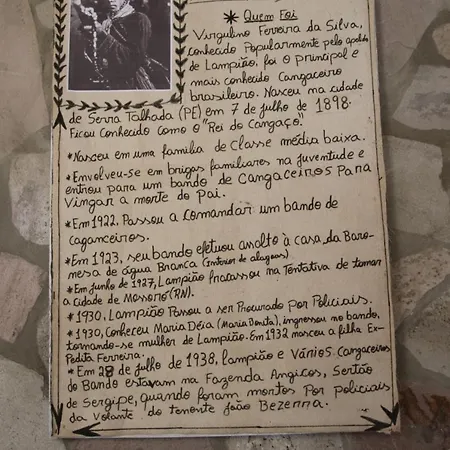 * Quem Foi
Virgulino Ferreira da Silva,
conhecido Popularmente pelo apelido
de Lampião, foi o principal e
mais conhecido Cangaceiro
brasileiro. Nasceu na cidade
de Serra Talhada (PE) em 7 de julho de 1898.
Ficou Conhecido como o "Rei do Cangaço".
*Nasceu em uma familia de Classe média baixa.
*Envolveu-se em brigas familiares na juventude e
entrou para um bando de Cangaceiros Para
Vingar a morte do Pai.
*Em 1922, Passou a Comandar um bando de
Caganceiros.
*Em 1923, seu bando efetuou assolto à casa da Baro-
mesa de água Branca (Interior de alagoas)
*Em Junho de 1927, Lampião fracassou na Tentativa de tomar
a Cidade de Mossoró (RN).
*1930, Lampião Passou a ser Procurado por Policiais.
*1930, Conheceu Maria Déia (Maria Bonita), ingressou no bando,
tornando-se mulher de Lampião. Em 1932 nasceu a filha Ex-
Pedita Ferreira.
*Em 28 de julho de 1938, Lampião e Vários Cangaceiros
do Bando estavam na Fazenda Angicos, Sertão
de Sergipe, quando foram mortos Por policiais
da Volante do tenente João Bezerra.